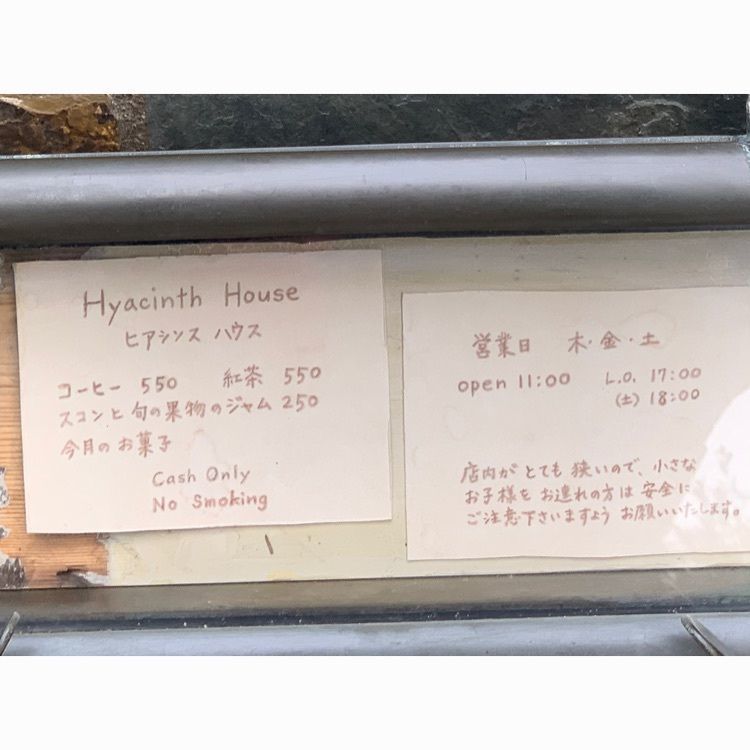 Hyacinth House
ヒアシンス ハウス
コーヒー 550 紅茶 550
スコンと旬の果物のジャム 250
今月のお菓子
Cash Only
No Smoking
営業日 木・金・土
open 11:00 L.O. 17:00
(土) 18:00
店内がとても狭いので、小さな
お子様をお連れの方は安全に
ご注意下さいますようお願いいたします。